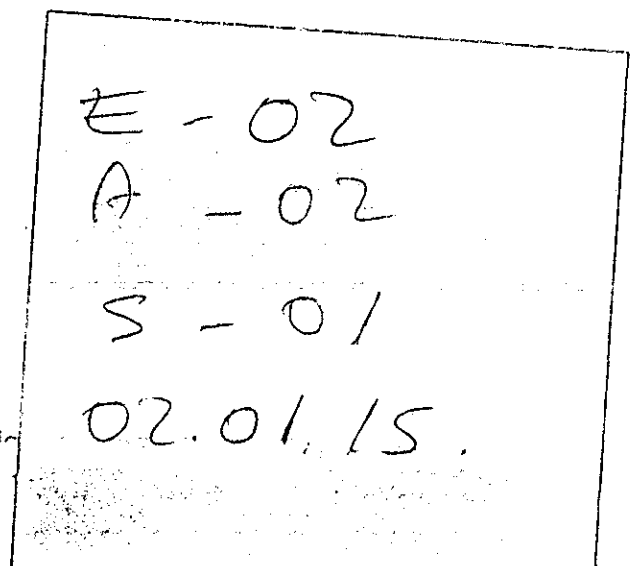 E - 02
A - 02
S - 01
02.01.15.